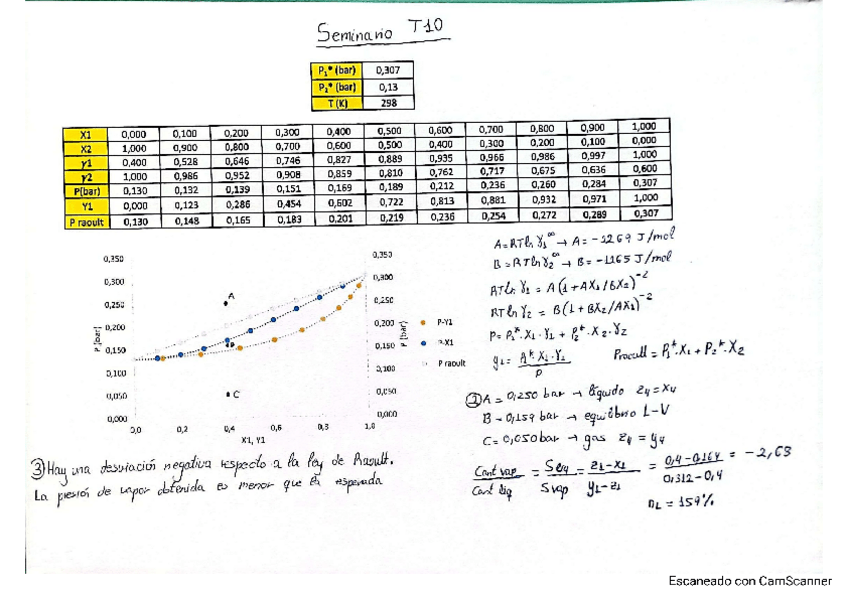 Seminario T10
P₁* (bar) 0,307
P₂* (bar) 0,13
T (K) 298
X1 0,000 0,100 0,200 0,300 0,400 0,500 0,600 0,700 0,800 0,900 1,000
X2 1,000 0,900 0,800 0,700 0,600 0,500 0,400 0,300 0,200 0,100 0,000
γ1 0,400 0,528 0,646 0,746 0,827 0,889 0,935 0,966 0,986 0,997 1,000
γ2 1,000 0,986 0,952 0,908 0,859 0,810 0,762 0,717 0,675 0,636 0,600
P(bar) 0,130 0,132 0,139 0,151 0,169 0,189 0,212 0,236 0,260 0,284 0,307
Y1 0,000 0,123 0,286 0,454 0,602 0,722 0,813 0,881 0,932 0,971 1,000
P raoult 0,130 0,148 0,165 0,183 0,201 0,219 0,236 0,254 0,272 0,289 0,307
A=RTlnγ₁^∞ → A = -2269 J/mol
B=RTlnγ₂^∞ → B = -1265 J/mol
RTlnγ₁ = A(1+AX₁/BX₂)^-2
RTlnγ₂ = B(1+BX₂/AX₁)^-2
P= P₁*·X₁·γ₁ + P₂*·X₂·γ₂
y₁= P₁*·X₁·γ₁/P
Praoult = P₁*·X₁+P₂*·X₂
0,350
0,300
0,250
0,200
0,150
0,100
0,050
0,000
P (bar)
0,0 0,2 0,4 0,6 0,8 1,0
X1, Y1
A
B
C
0,350
0,300
0,250
0,200
0,150
0,100
0,050
0,000
P (bar)
P-Y1
P-X1
P raoult
② A = 0,250 bar → líquido z₁=x₁
B - 0,159 bar → equilibrio L-V
C = 0,050bar → gas z₁ = y₁
Cant vap/Cant liq = / = z₁-x₁/y₁-z₁ = 0,4-0,164/0,312-0,4 = -2,63
n_L = 159%
③ Hay una desviación negativa respecto a la ley de Raoult.
La presión de vapor obtenida es menor que la esperada
Escaneado con CamScanner